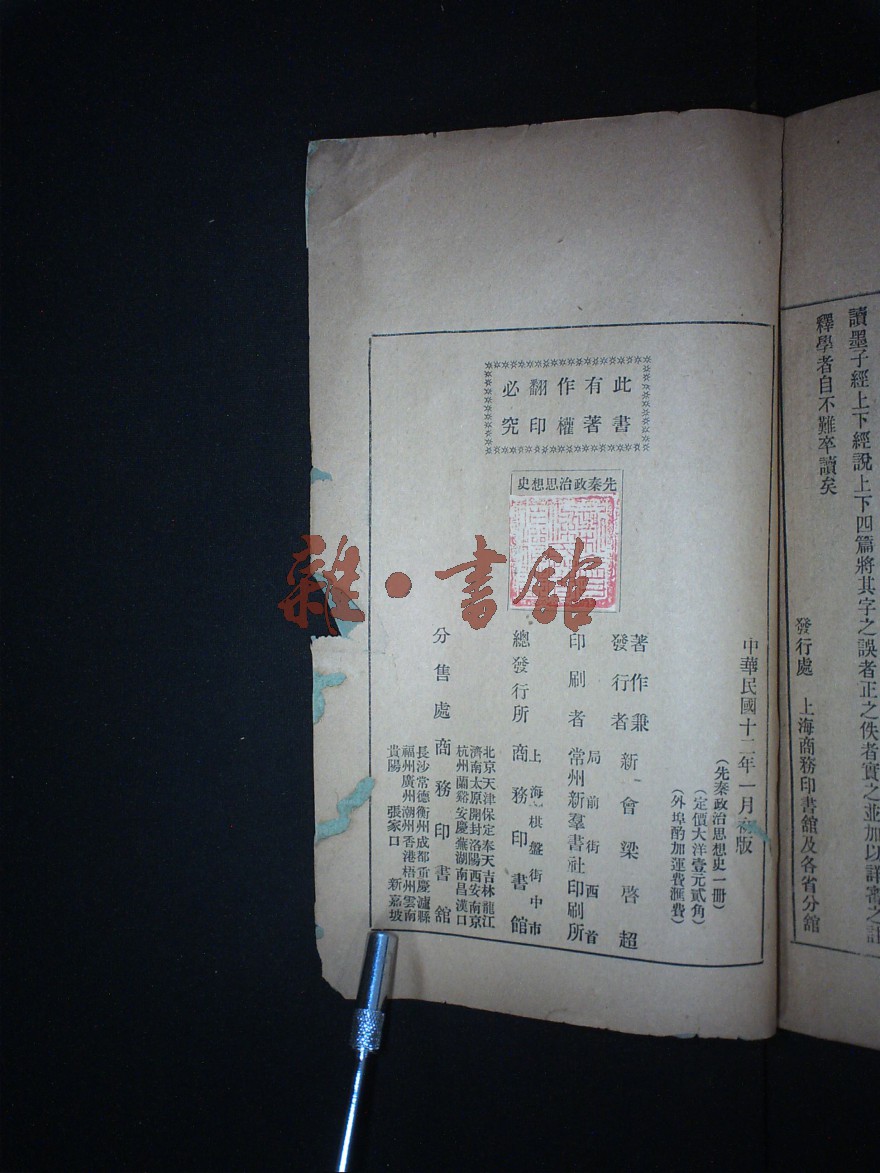 讀墨子經上下經說上下四篇將其字之誤者正之佚者實之並加以詳審之註
釋學者自不難卒讀矣
發行處 上海商務印書館及各省分館
此書
有著
作權
翻印
必究
先秦政治思想史
中華民國十二年一月初版
(先秦政治思想史一冊)
(定價大洋壹元貳角)
(外埠酌加運費滙費)
著作兼
發行者 新會梁啓超
印刷者 常州新羣書社印刷所
局前街西首
總發行所 商務印書館
上海棋盤街中市
分售處 商務印書館
北京天津保定奉天吉林龍江
濟南太原開封洛陽西安南京
杭州蘭谿安慶蕪湖南昌漢口
長沙常德衡州成都重慶瀘縣
福州廣州潮州香港梧州雲南
貴陽 張家口 新嘉坡
雜·書館